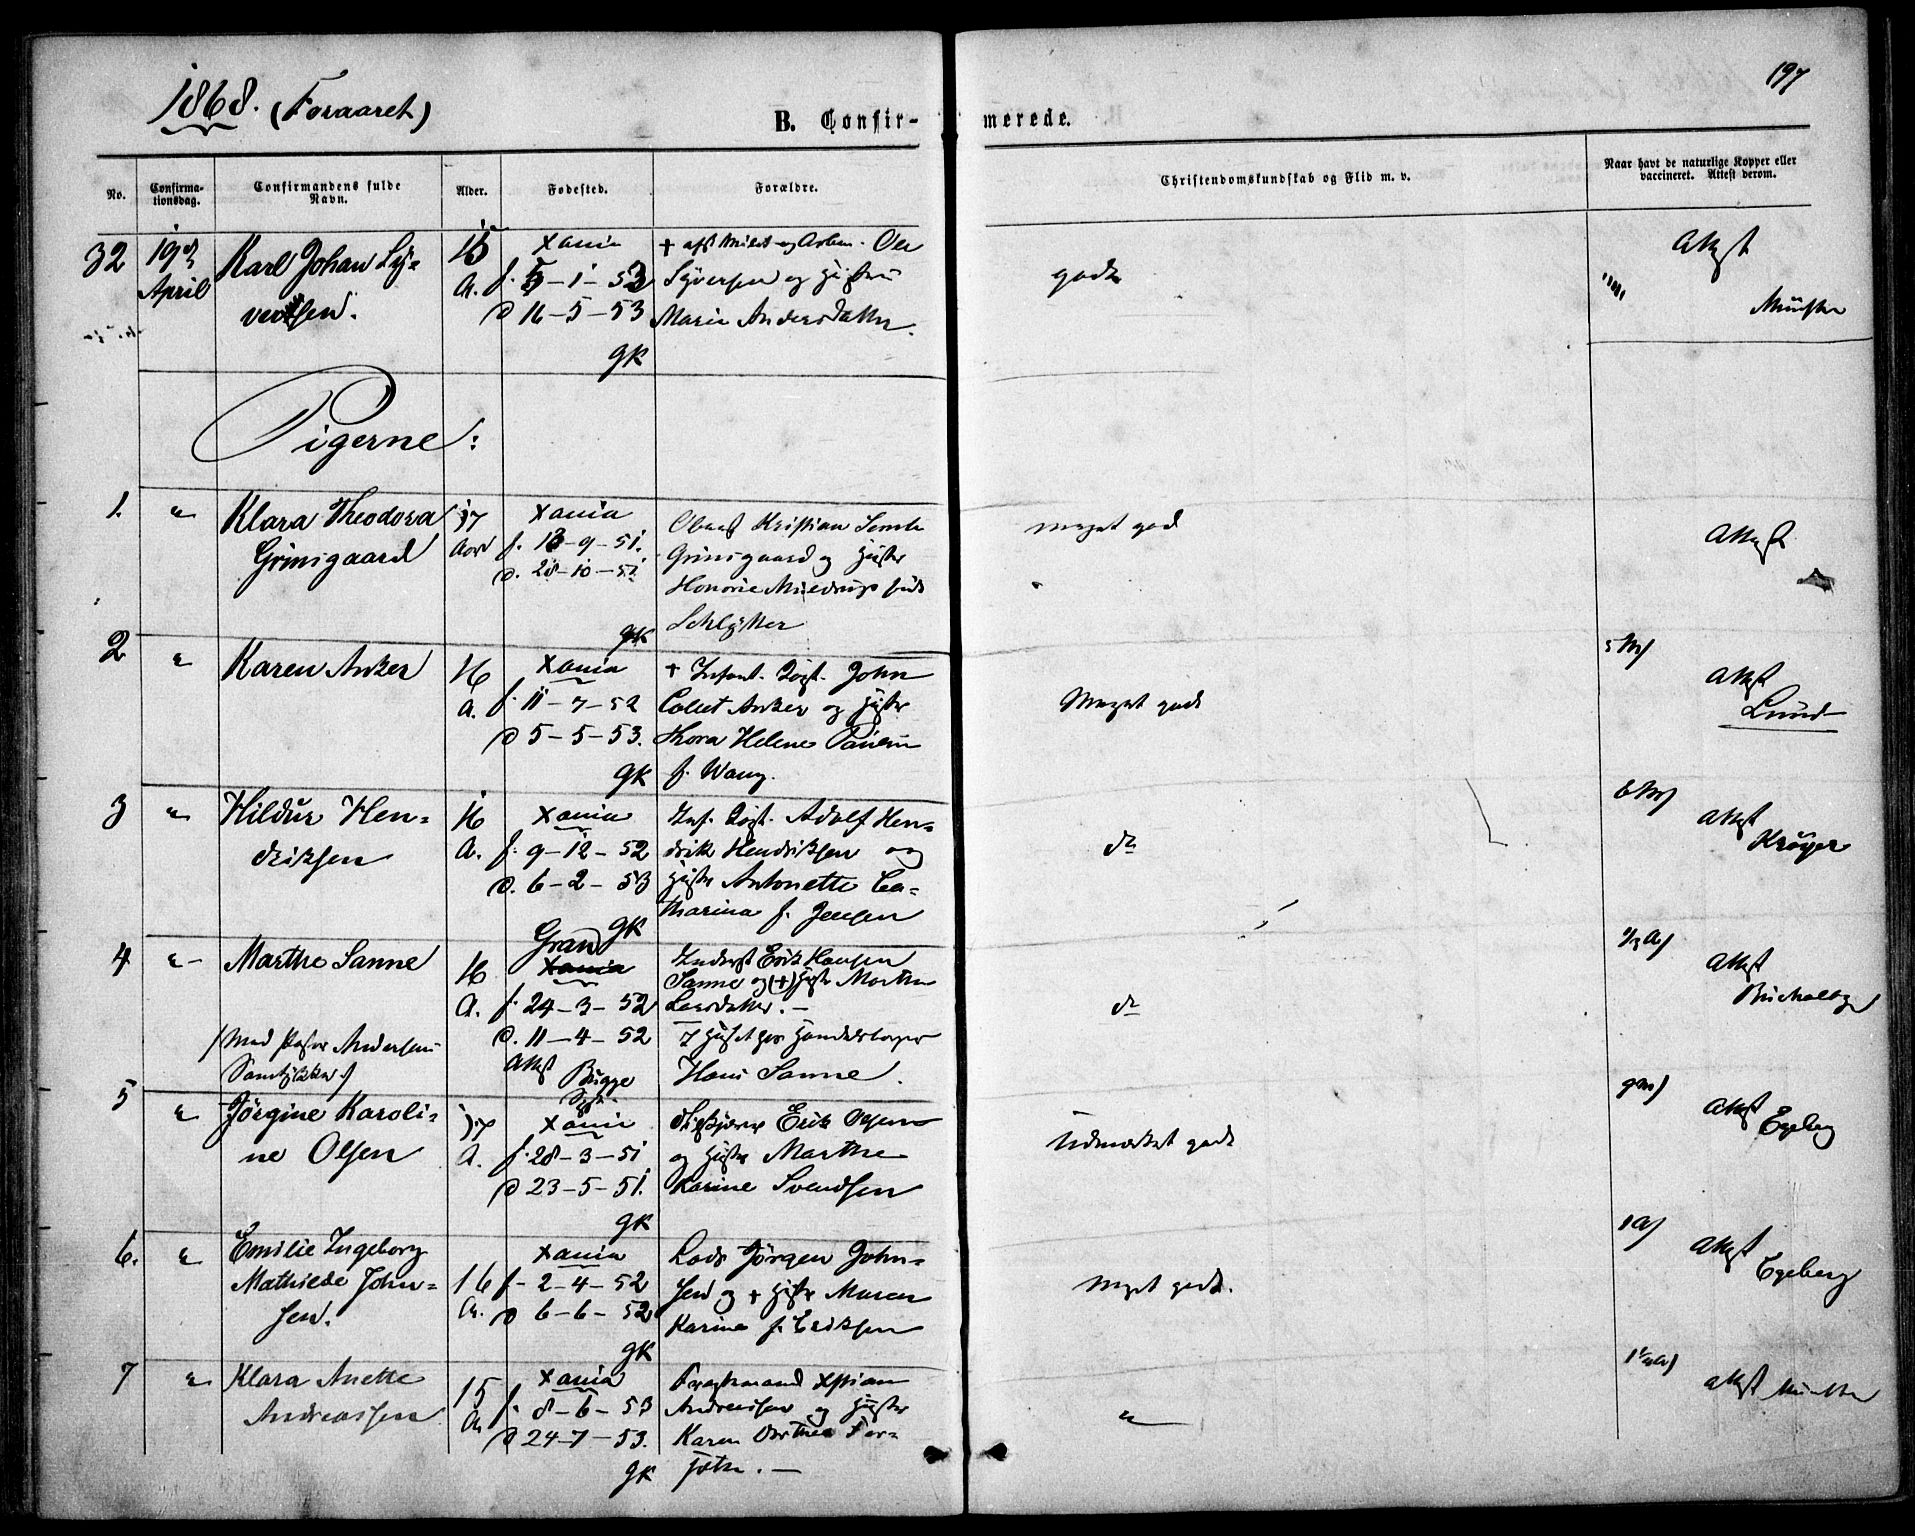 1868. (Foraaret)
197
B. Confir-
merede.
No.
Confirma-
tionsdag.
Confirmandens fulde
Navn.
Alder.
Fødested.
Forældre.
Christendomskundskab og Flid m. v.
Naar havt de naturlige Kopper eller
vaccineret. Attest derom.
32
19de
April
Karl Johan Sy-
versen.
15
A.
Xania
f. 5-1-53
d 16-5-53
gk
+ afsk. og Arbm. Ole
Syversen og Hustru
Marie Andersdatter.
godt
Attest
Münster
Pigerne:
1.
"
Klara Theodora
Grimsgaard
17
Aar
Xania
f. 13-9-51.
d. 28-10-51
gk
Kristian
Grimsgaard og Hustru
Honorie født
Schlytter
meget god
Attest
2
"
Karen Anker
16
A.
Xania
f. 11-7-52
d 5-5-53.
gk
+ Infant. John
Collet Anker og Hustru
Thora Helene
f. Wang.
Meget godt
5 M)
Attest
Lund
3
"
Hildur Hen-
driksen
16
A.
Xania
f. 9-12-52
d. 6-2-53
gk
Adolf Hen-
drik Hendriksen og
Hustru Antonette Ca-
tharina f. Jensen
do
6 M)
Attest
Krøyer
4
"
Marthe Sanne
16
A.
Gran
Xania
f. 24-3-52
d. 11-4-52
Attest
Bugge
Inderst Erik Hansen
Sanne og (+) Hustru Marthe
Larsdatter.-
I Huset hos Handelsborger
Hans Sanne.
(Med Pastor Andersens
Samtykke)
do
Attest
5
"
Jørgine Karoli-
ne Olsen
17
A.
Xania
f. 28-3-51
d 23-5-51.
gk
Erik Olsen
og Hustru Marthe
Karine Svendsen
Udmærket godt
9 M)
Attest
Egeberg
6.
"
Emilie Ingeborg
Mathilde John-
sen.
16
A.
Xania
f. 2-4-52
d 6-6-52
gk
Lods Jørgen John-
sen og + Hustru Maren
Karine f. Eriksen
Meget godt.
1 A)
Attest
Egeberg
7
"
Klara Anette
Andreassen
15
A
Xania
f. 8-6-53
d 24-7-53.
gk
Fragtmand Xstian
Andreassen og Hustru
Karen Dorthea
"
Attest